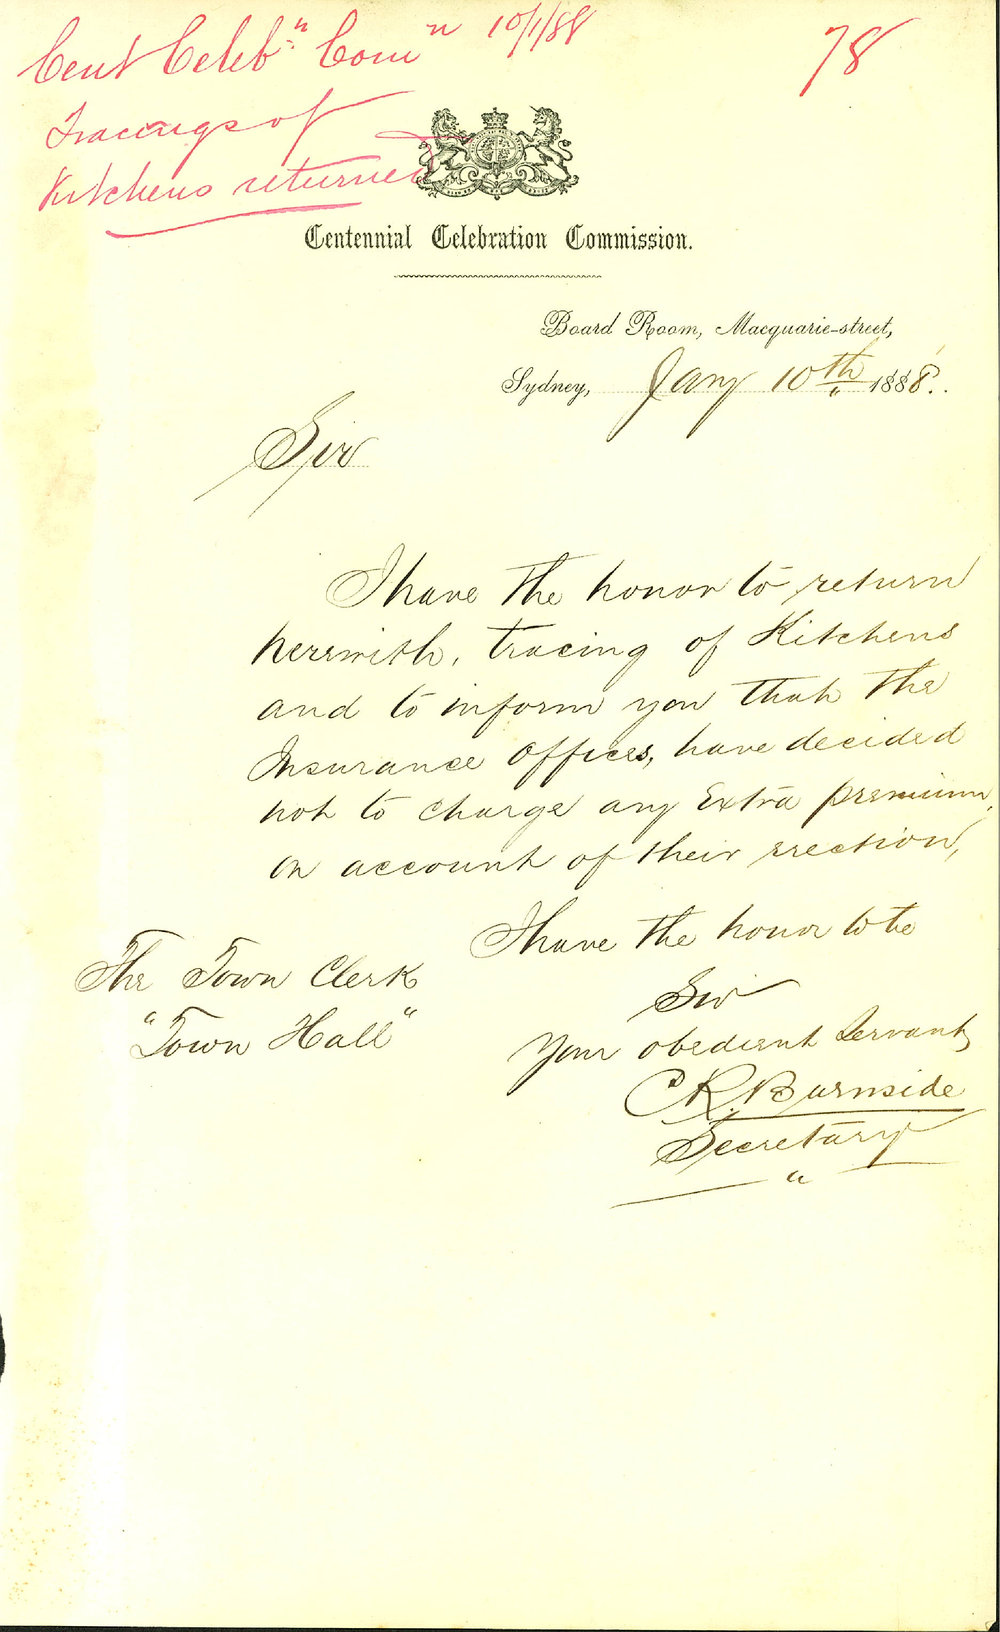 Cent Celebn Comn 10/1/88
78
Tracings of
Kitchens returned
Centennial Celebration Commission.
Board Room, Macquarie-street,
Sydney, Jany 10th 1888.
Sir
I have the honor to return
herewith, tracing of Kitchens
and to inform you that the
Insurance Offices, have decided
not to charge any Extra premium,
on account of their erection,
I have the honor to be
Sir
Your obedient Servant
C R. Burnside
Secretary
The Town Clerk
"Town Hall"